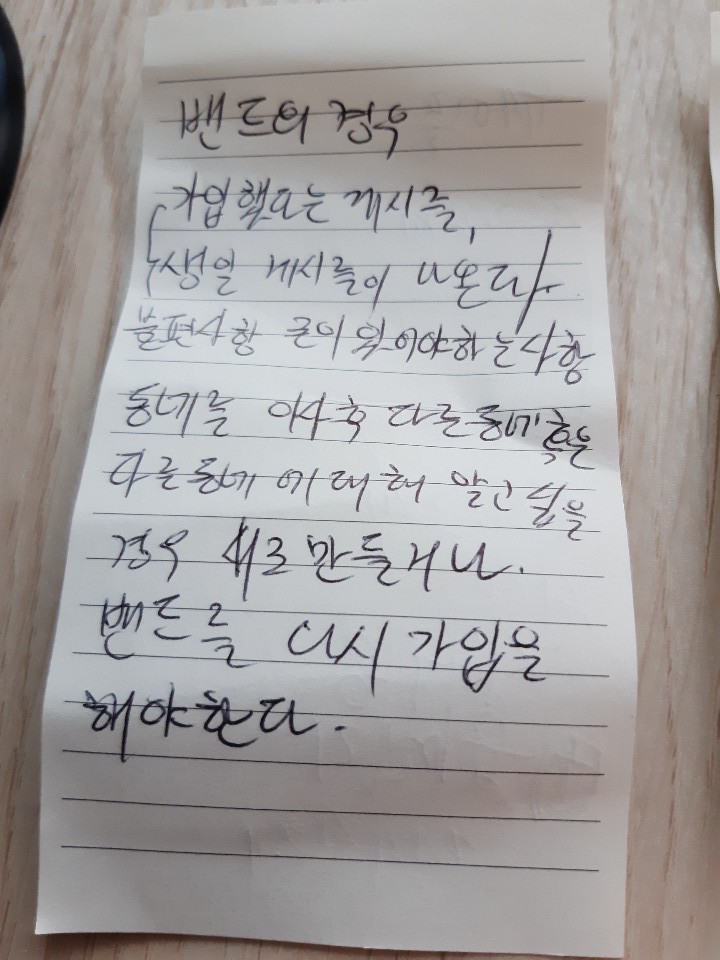 밴드의 경우
가입했다는 게시글,
생일 게시글이 나온다.
불편사항 굳이 있어야하는사항
동네를 이사후 다른동네 혹은
다른동네에 대해 알고싶을
경우 새로 만들거나.
밴드를 다시 가입을
해야한다.